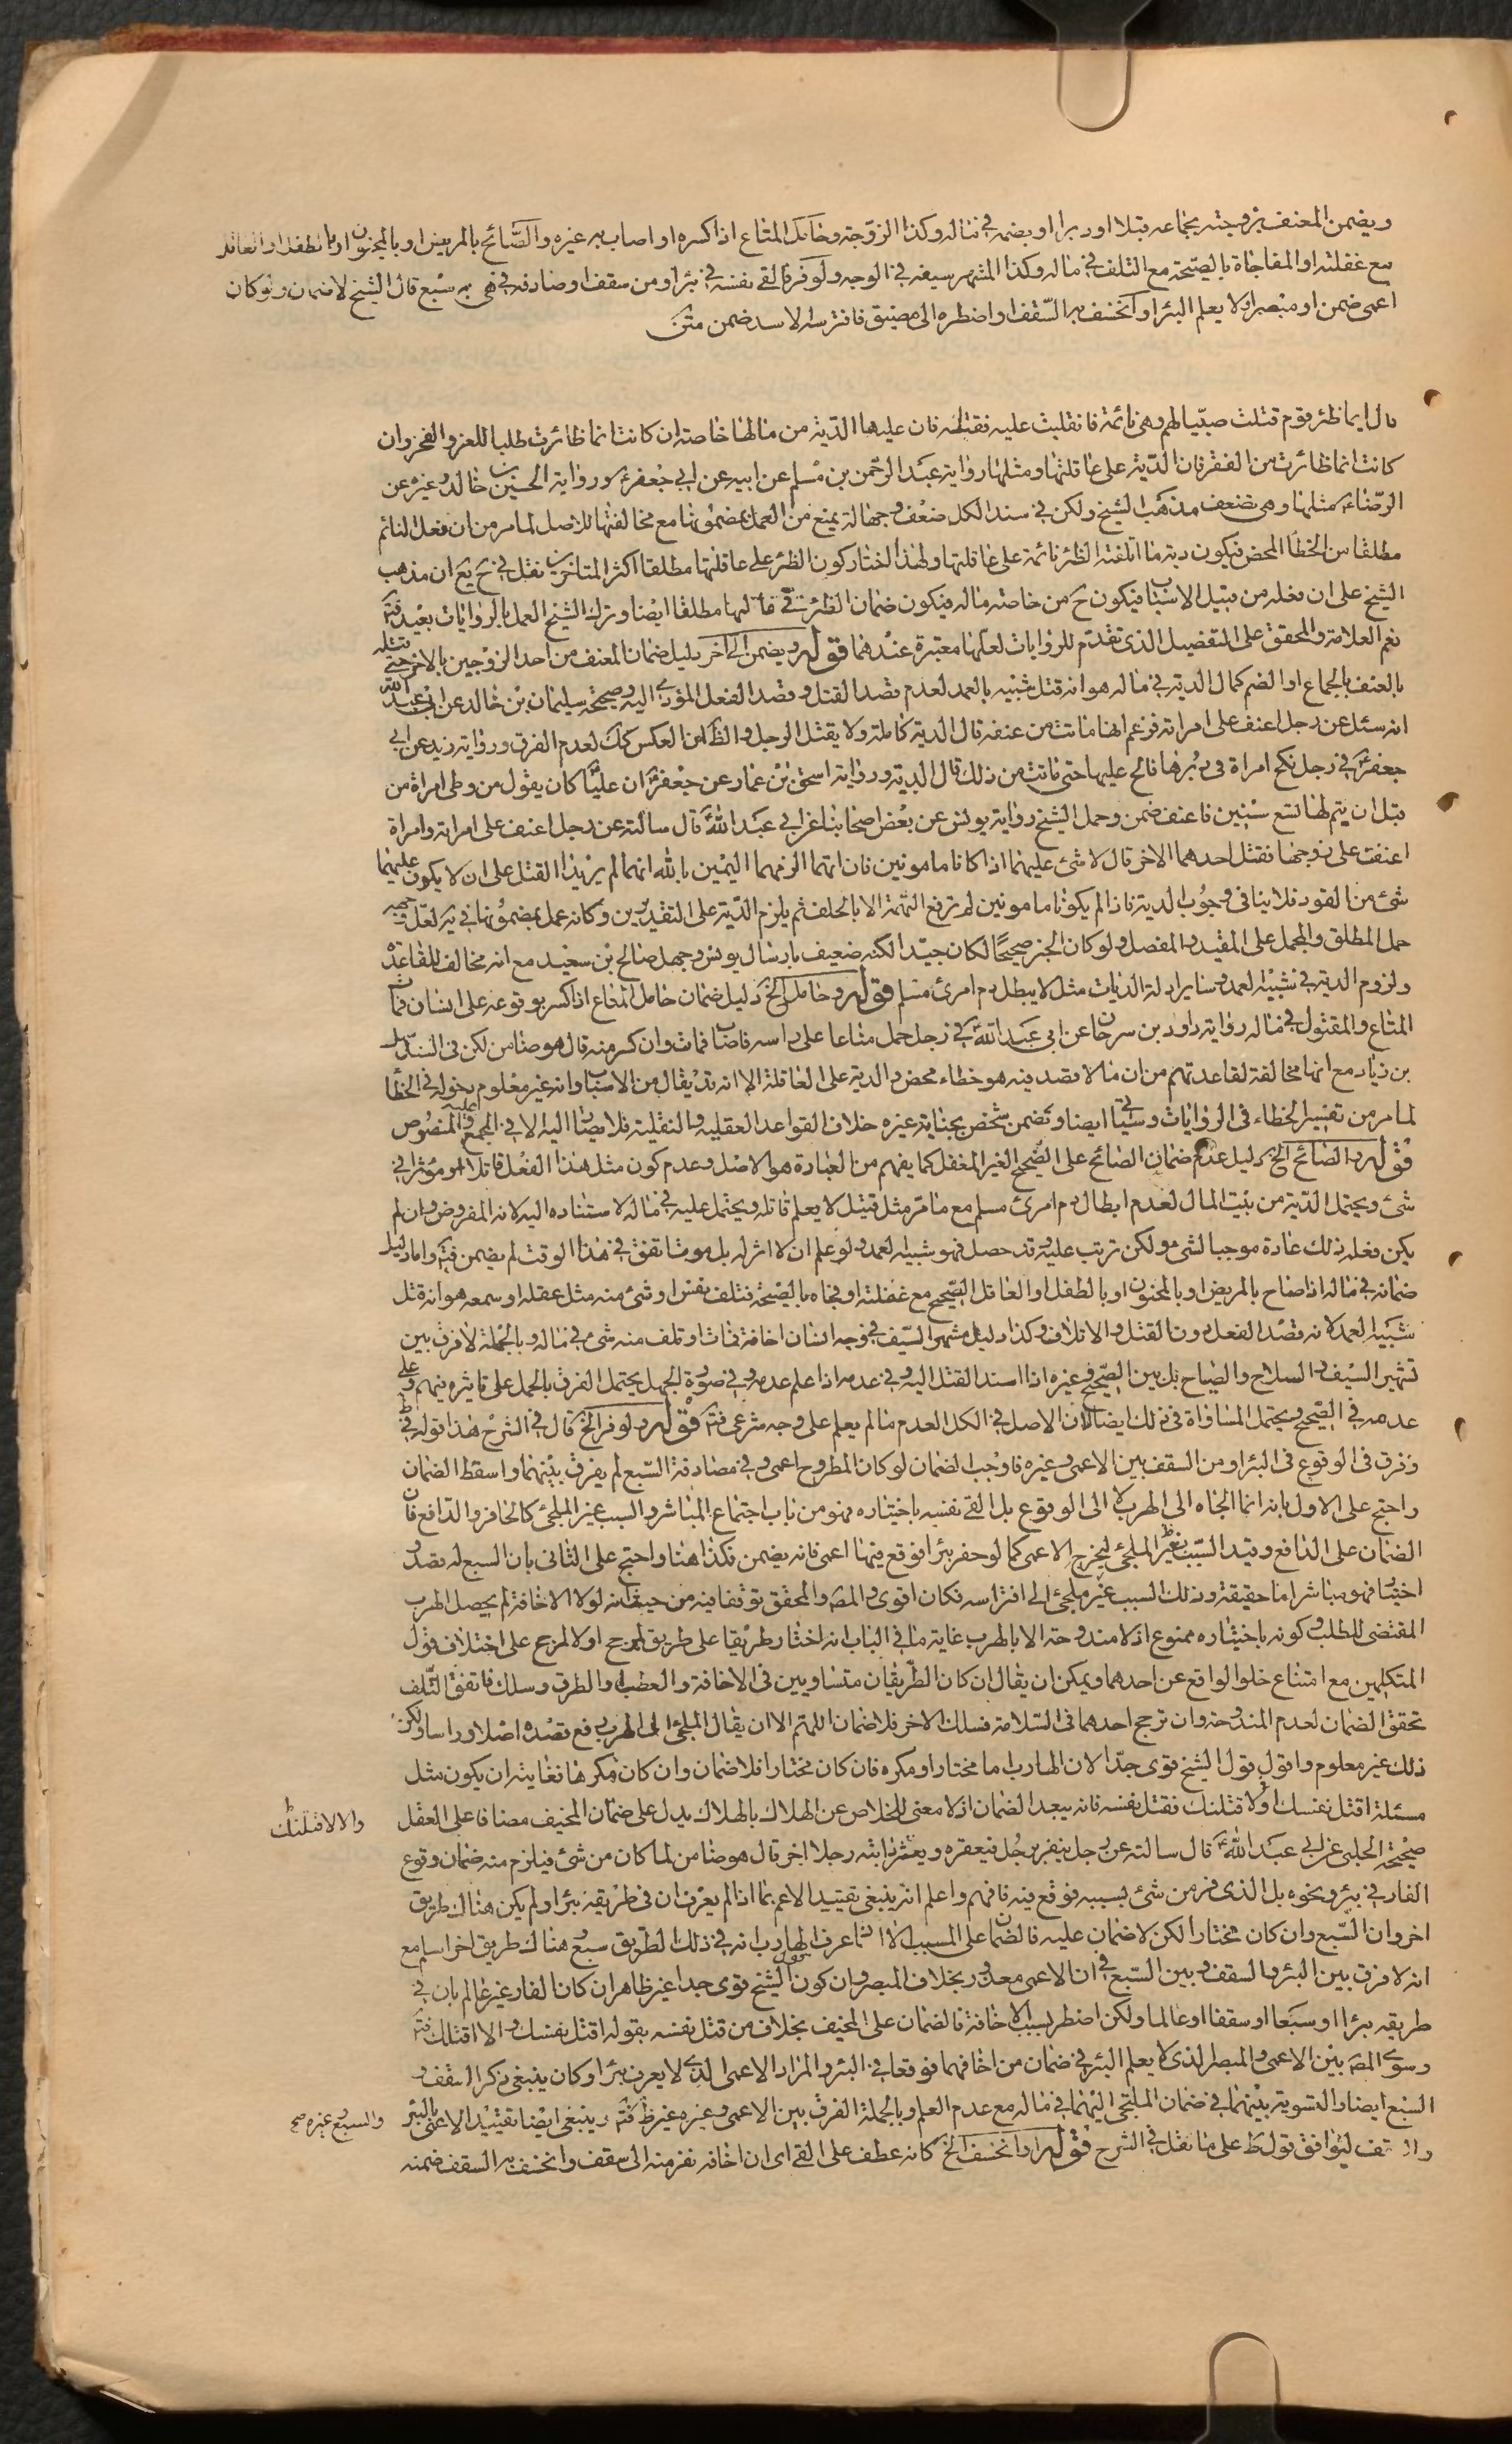 ويضمن المعنف بزوجته بجماعه قبلا او دبرا او بضمه في ماله وكذا الزوجة وحامل المتاع اذا كسره او اصاب به غيره والصائح بالمريض او بالمجنون او بالطفل او العاقل
مع غفلته او المفاجاة بالصيحة مع التلف في ماله وكذا المشهر سيفه في الوجه ولو فر فالقى نفسه في بئر او من سقف او صادفه في هربه سبع قال الشيخ لا ضمان ولو كان
اعمى ضمن او مبصرا ولا يعلم البئر او انخسف به السقف او اضطره الى مضيق فافترسه الاسد ضمن متن
قال ايما ظئر قوم قتلت صبيا لهم وهى نائمة فانقلبت عليه فقتلته فان عليها الدية من مالها خاصة ان كانت انما ظائرت طلبا للعز والفخر وان
كانت انما ظائرت من الفقر فان الدية على عاقلتها ومثلها رواية عبد الرحمن بن مسلم عن ابيه عن ابي جعفر ع ورواية الحسين بن خالد وغيره عن
الرضا ع مثلها وهى تضعف مذهب الشيخ ولكن في سند الكل ضعف وجهالة يمنع من العمل بمضمونها مع مخالفتها للاصل لما مر من ان فعل النائم
مطلقا من الخطا المحض فيكون دية ما اتلفته الظئر نائمة على عاقلتها ولهذا اختار كون الظئر على عاقلتها مطلقا اكثر المتاخرين نقل في ح يع ان مذهب
الشيخ على ان فعله من قبيل الاسباب فيكون ح من خاصة ماله فيكون ضمان الظئر في مالها مطلقا ايضا وترك الشيخ العمل بالروايات بعيد فت
نعم العلامة والمحقق على التفضيل الذى تقدم للروايات لعلها معتبرة عندهما قوله ويضمن الى آخر دليل ضمان المعنف من احد الزوجين بالاخر حتى قتله
بالعنف بالجماع او الضم كمال الدية في ماله هو انه قتل شبيه بالعمد لعدم قصد القتل وقصد الفعل المؤدي اليه وصحيحة سليمان بن خالد عن ابي عبد الله
انه سئل عن رجل اعنف على امراته فزعم انها ماتت من عنفه قال الدية كاملة ولا يقتل الرجل والظ ان العكس كك لعدم الفرق ورواية زيد عن ابي
جعفر ع في رجل نكح امراة في دبرها فالح عليها حتى ماتت من ذلك قال الدية ورواية اسحق بن عمار عن جعفر ع ان عليا كان يقول من وطى امراة من
قبل ان يتم لها تسع سنين فاعنف ضمن وحمل الشيخ رواية يونس عن بعض اصحابنا عن ابي عبد الله ع قال سالته عن رجل اعنف على امراته وامراة
اعنفت على زوجها فقتل احدهما الاخر قال لا شئ عليهما اذا كانا مامونين فان اتهما الزمهما اليمين بالله انهما لم يريدا القتل على ان لا يكون عليهما
شئ من القود فلا ينافي وجوب الدية فاذا لم يكونا مامونين لم ترفع التهمة الا بالحلف ثم يلزم الدية على التقديرين وكانه عمل بمضمونها في يه لعل وجهه
حمل المطلق والمجمل على المقيد والمفصل ولو كان الخبر صحيحا لكان جيدا لكنه ضعيف بارسال يونس وجهل صالح بن سعيد مع انه مخالف للقاعدة
ولزوم الدية في شبيه العمد وساير ادلة الديات مثل لا يبطل دم امرئ مسلم قوله وحامل الخ دليل ضمان حامل المتاع اذا كسر بوقوعه على انسان فمات
المتاع والمقتول في ماله رواية داود بن سرحان عن ابي عبد الله ع في رجل حمل متاعا على راسه فاصاب فمات وان كسر منه قال هو ضامن لكن في السند سهل
بن زياد مع انها مخالفة لقاعدتهم من ان ما لا قصد فيه هو خطاء محض والدية على العاقلة الا انه قد يقال من الاسباب وانه غير معلوم دخوله في الخطا
لما مر من تفسير الخطاء في الروايات وسياتي ايضا وتضمن شخص بجناية غيره خلاف القواعد العقلية والنقلية فلا يصار اليه الا في المجمع عليه والمنصوص
قوله والصائح الخ دليل عدم ضمان الصائح على الصحيح الغير المغفل كما يفهم من العبارة هو الاصل وعدم كون مثل هذا الفعل قاتلا او مؤثرا في
شئ ويحتمل الدية من بيت المال لعدم ابطال دم امرئ مسلم مع ما مر مثل قتيل لا يعلم قاتله ويحتمل عليه في ماله لاستناده اليه لانه المفروض وان لم
يكن فعله ذلك عادة موجبا لشئ ولكن ترتب عليه وقد حصل فهو شبيه العمد ولو علم ان لا اثر له بل موتا تفق في هذا الوقت لم يضمن فت واما دليل
ضمانه في ماله اذا صاح بالمريض او بالمجنون او بالطفل او العاقل الصحيح مع غفلته او فجاه بالصيحة فتلف نفس او شئ منه مثل عقله او سمعه هو انه قتل
شبيه العمد لانه قصد الفعل دون القتل والاتلاف وكذا دليل مشهر السيف في وجه انسان اخافة فمات او تلف منه شئ في ماله وبالجملة لا فرق بين
تشهير السيف والسلاح والصياح بل بين الصحيح وغيره اذا اسند القتل اليه وفي عدمه اذا علم عدمه وفي صورة الجهل يحتمل الفرق بالحمل على تاثيره فيهم وعلى
عدمه في الصحيح ويحتمل المساواة في ذلك ايضا لان الاصل في الكل العدم ما لم يعلم على وجه شرعى فت قوله ولو فر الخ قال في الشرح هذا قوله في ط
وفرق في الوقوع في البئر او من السقف بين الاعمى وغيره فاوجب الضمان لو كان المطروح اعمى وفي مصادفة السبع لم يفرق بينهما واسقط الضمان
واحتج على الاول بانه انما الجاه الى الهرب لا الى الوقوع بل القى نفسه باختياره فهو من باب اجتماع المباشر والسبب غير الملجئ كالحافر والدافع فان
الضمان على الدافع وقيد السبب بغير الملجئ ليخرج الاعمى كما لو حفر بئرا فوقع فيها اعمى فانه يضمن فكذا هنا واحتج على الثانى بان السبع له قصد و
اختيار فهو مباشر اما حقيقة وذلك السبب غير ملجئ الى افتراسه فكان اقوى والمص والمحقق توقفا فيه من حيث انه لولا الاخافة لم يحصل الهرب
المقتضى للطلب وكونه باختياره ممنوع اذ لا مندوحة الا بالهرب غاية ما في الباب انه اختار طريقا على طريق لمرجح او لا لمرجح على اختلاف قول
المتكلمين مع امتناع خلو الواقع عن احدهما ويمكن ان يقال ان كان الطريقان متساويين في الاخافة والعطب والطرق وسلك فاتفق التلف
تحقق الضمان لعدم المندوحة وان ترجح احدهما في السلامة فسلك الاخر فلا ضمان اللهم الا ان يقال الملجئ الى الهرب رفع قصده اصلا وراسا ولكن
ذلك غير معلوم واقول قول الشيخ قوى جدا لان الهارب اما مختار او مكره فان كان مختارا فلا ضمان وان كان مكرها فغايته ان يكون مثل
مسئلة اقتل نفسك او لا قتلنك فقتل نفسه فانه يبعد الضمان اذ لا معنى للخلاص عن الهلاك بالهلاك يدل على ضمان المخيف مضافا على العقل
والا لاقتلنك
صحيحة الحلبى عن ابي عبد الله ع قال سالته عن رجل ينفر برجل فيعقره ويعقر دابته رجلا اخر قال هو ضامن لما كان من شئ فيلزم منه ضمان وقوع
الفار في بئر ونحوه بل الذى فر من شئ بسببه فوقع فيه فافهم واعلم انه ينبغى تقييد الاعمى بما اذا لم يعرف ان في طريقه بئرا ولم يكن هناك طريق
اخر وان السبع وان كان مختارا لكن لا ضمان عليه فالضمان على المسبب الا اذا عرف الهارب انه في ذلك الطريق سبع وهناك طريق اخر اسلم مع
انه لا فرق بين البئر والسقف وبين السبع في ان الاعمى معذور بخلاف المبصر وان كون قول الشيخ قوى جدا غير ظاهر ان كان الفار غير عالم بان في
طريقه بئرا او سبعا او سقفا او عالما ولكن اضطر بسبب الاخافة فالضمان على المخيف بخلاف من قتل نفسه بقوله اقتل نفسك والا اقتلك فت
وسوى المص بين الاعمى والمبصر الذى لا يعلم البئر في ضمان من اخافهما فوقعا في البئر والمراد الاعمى الذى لا يعرف بئرا وكان ينبغى ذكر السقف و
السبع ايضا والتسوية بينهما في ضمان الملجئ اليهما في ماله مع عدم العلم وبالجملة الفرق بين الاعمى وغيره غير ظ فت وينبغى ايضا تقييد الاعمى بالبئر
والسبع وغيره صح
والسقف ليوافق قول ط على ما نقل في الشرح قوله او انخسف الخ كانه عطف على القى اى ان اخافه نفر منه الى سقف وانخسف به السقف ضمنه